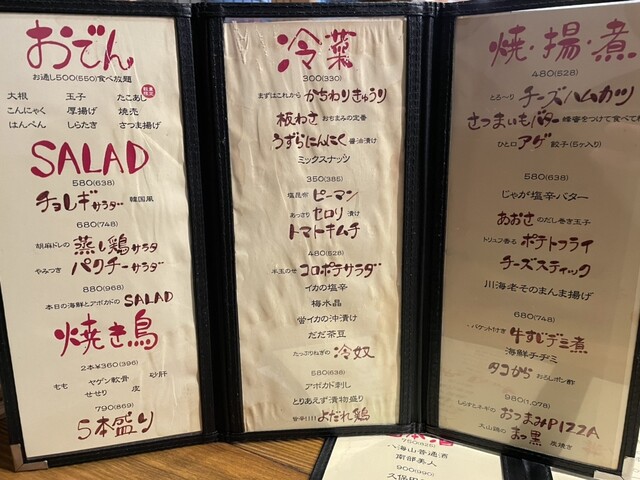 おでん
お通し500(550)食べ放題
大根 玉子 たこあし
こんにゃく 厚揚げ 焼売
はんぺん しらたき さつま揚げ
SALAD
580(638)
チョレギサラダー 韓国風
680(748)
胡麻ドレの蒸し鶏サラダ
やみつきパクチーサラダー
880(968)
本日の海鮮とアボカドのSALAD
焼き鳥
2本¥360(396)
もも ヤゲン軟骨 砂肝
せせり 皮
790(869)
5本盛り
冷菜
300(330)
まずはこれからかちわりきゅうり
板わさ おちまみの定番
うずらにんにく 醤油漬け
ミックスナッツ
350(385)
塩昆布ピーマン
あっさりセロリ漬け
トマトキムチ
480(528)
半玉のせコロポテサラダ
イカの塩辛
梅水晶
蛍イカの沖漬け
だだ茶豆
たっぷりねぎの冷奴
580(638)
アボカド刺し
とりあえず漬物盛り
旨辛(川)よだれ鶏
焼・揚・煮
480(528)
とろ〜りチーズハムカツ
さつまいもバター 蜂蜜をつけて食べて
ひと口アゲ餃子(5ヶ入り)
580(638)
じゃが塩辛バター
あおさのだし巻き玉子
トリュフ香るポテトフライ
チーズスティック
川海老そのまんま揚げ
680(748)
・バケット付き牛すじデミ煮
海鮮チヂミ
タコから おろしポン酢
980(1,078)
しらすとネギのおつまみPIZZA
大山鶏のまっ黒 炭焼き
750(825)
八海山普通酒
南部美人
900(990)
久保田